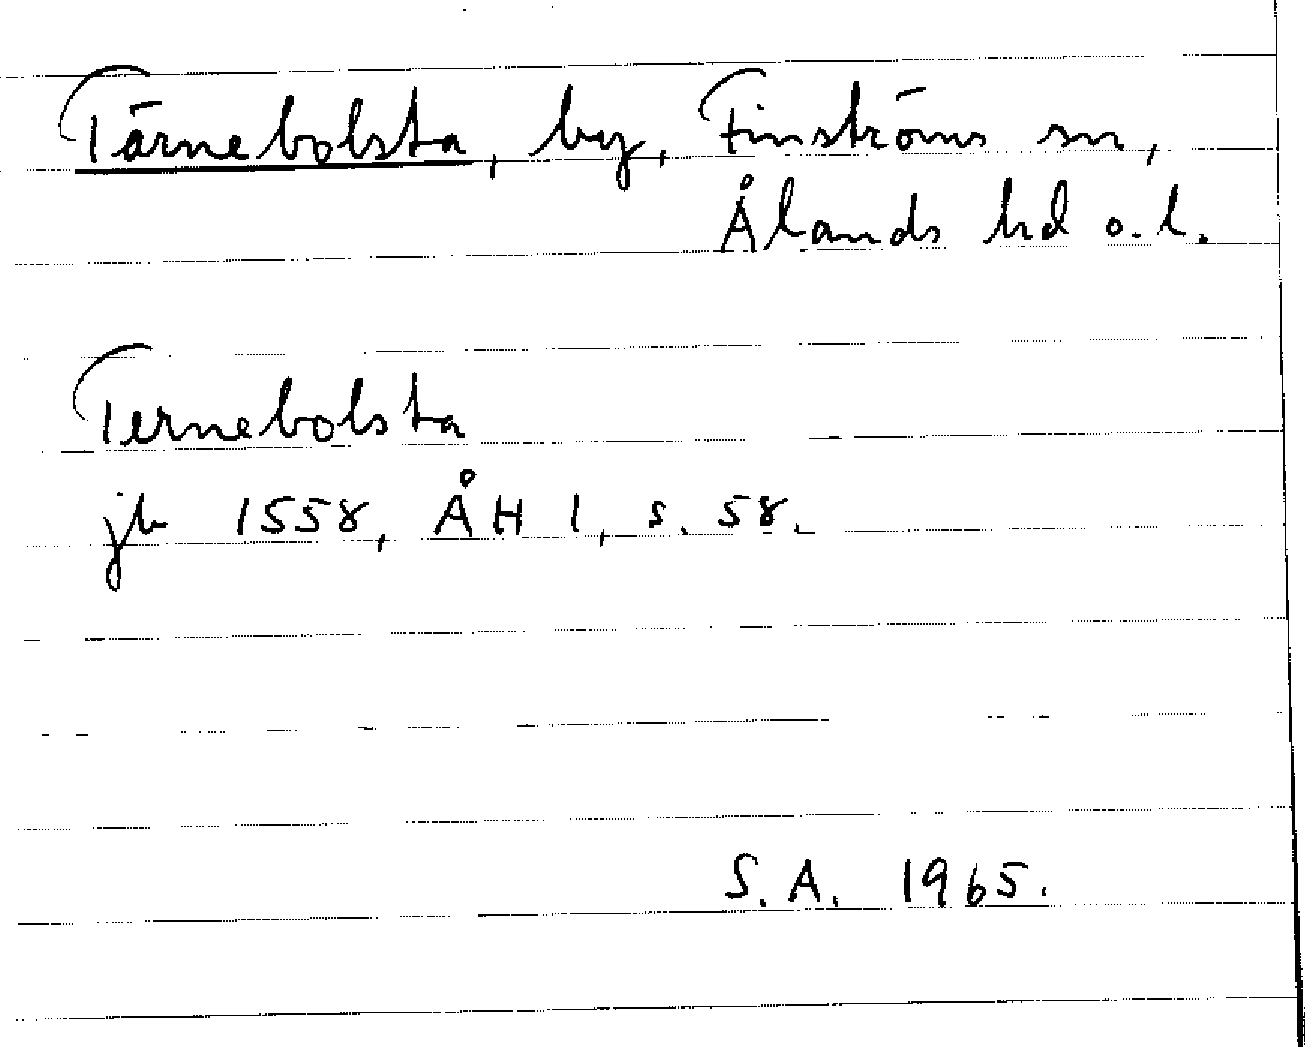 Tärnebolsta, by, Finströms sn,
Ålands hd o. l.
Ternebolsta
jb 1558, ÅH 1, s. 58.
S.A. 1965.